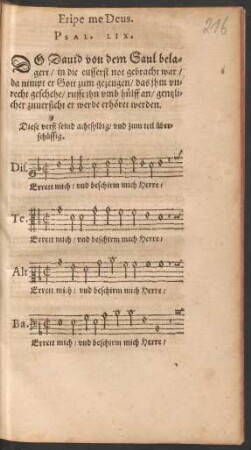 Eripe me Deus.
216
PSAL. LIX.
DO Dauid von dem Saul bela-
gert / in die eusserst not gebracht war /
da nimpt er Gott zum gezeugen / das jhm vn-
recht geschehe / rufft ihn vmb hülff an / gentzli-
cher zuuersicht er werde erhöret werden.
Diese verß seind achtsylbig / vnd zum teil über-
schüssig.
Dis.
Errett mich / vnd beschirm mich Herre /
Te.
Errett mich / vnd beschirm mich Herre /
Alt
Errett mich / vnd beschirm mich Herre /
Ba.
Errett mich / vnd beschirm mich Herre /